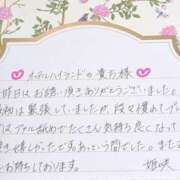 ホテルハイランドの貴方様
昨日はお誘い頂きありがとうございました
最初は緊張していましたが、段々慣れて
アナル舐めでたくさん気持ち良くなって
嬉しかったしあっという間でした。また
お待ちしております。 姫咲